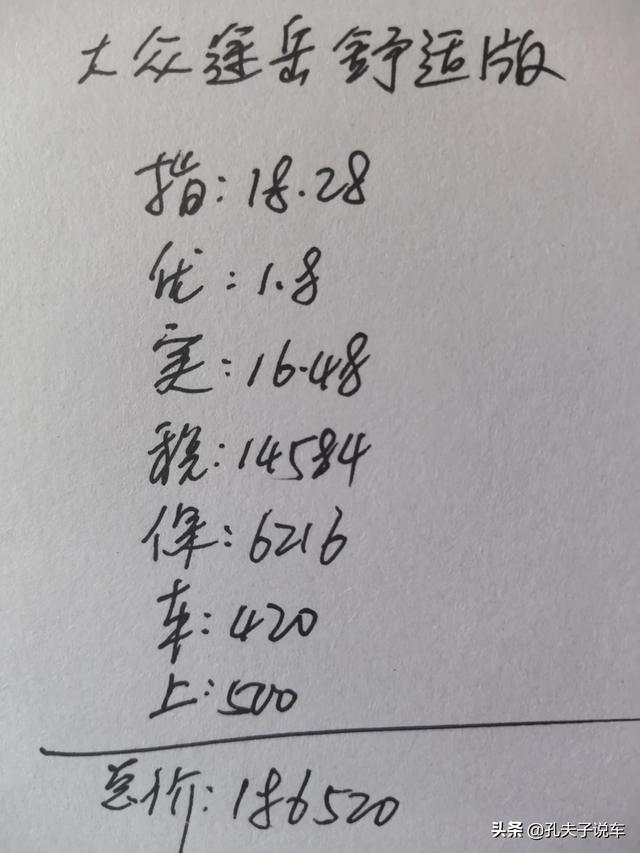 大众途岳舒适版
指:18.28
优:1.8
实:16.48
税:14584
保:6216
车:420
上:500
总价:186520
头条 @孔夫子说车